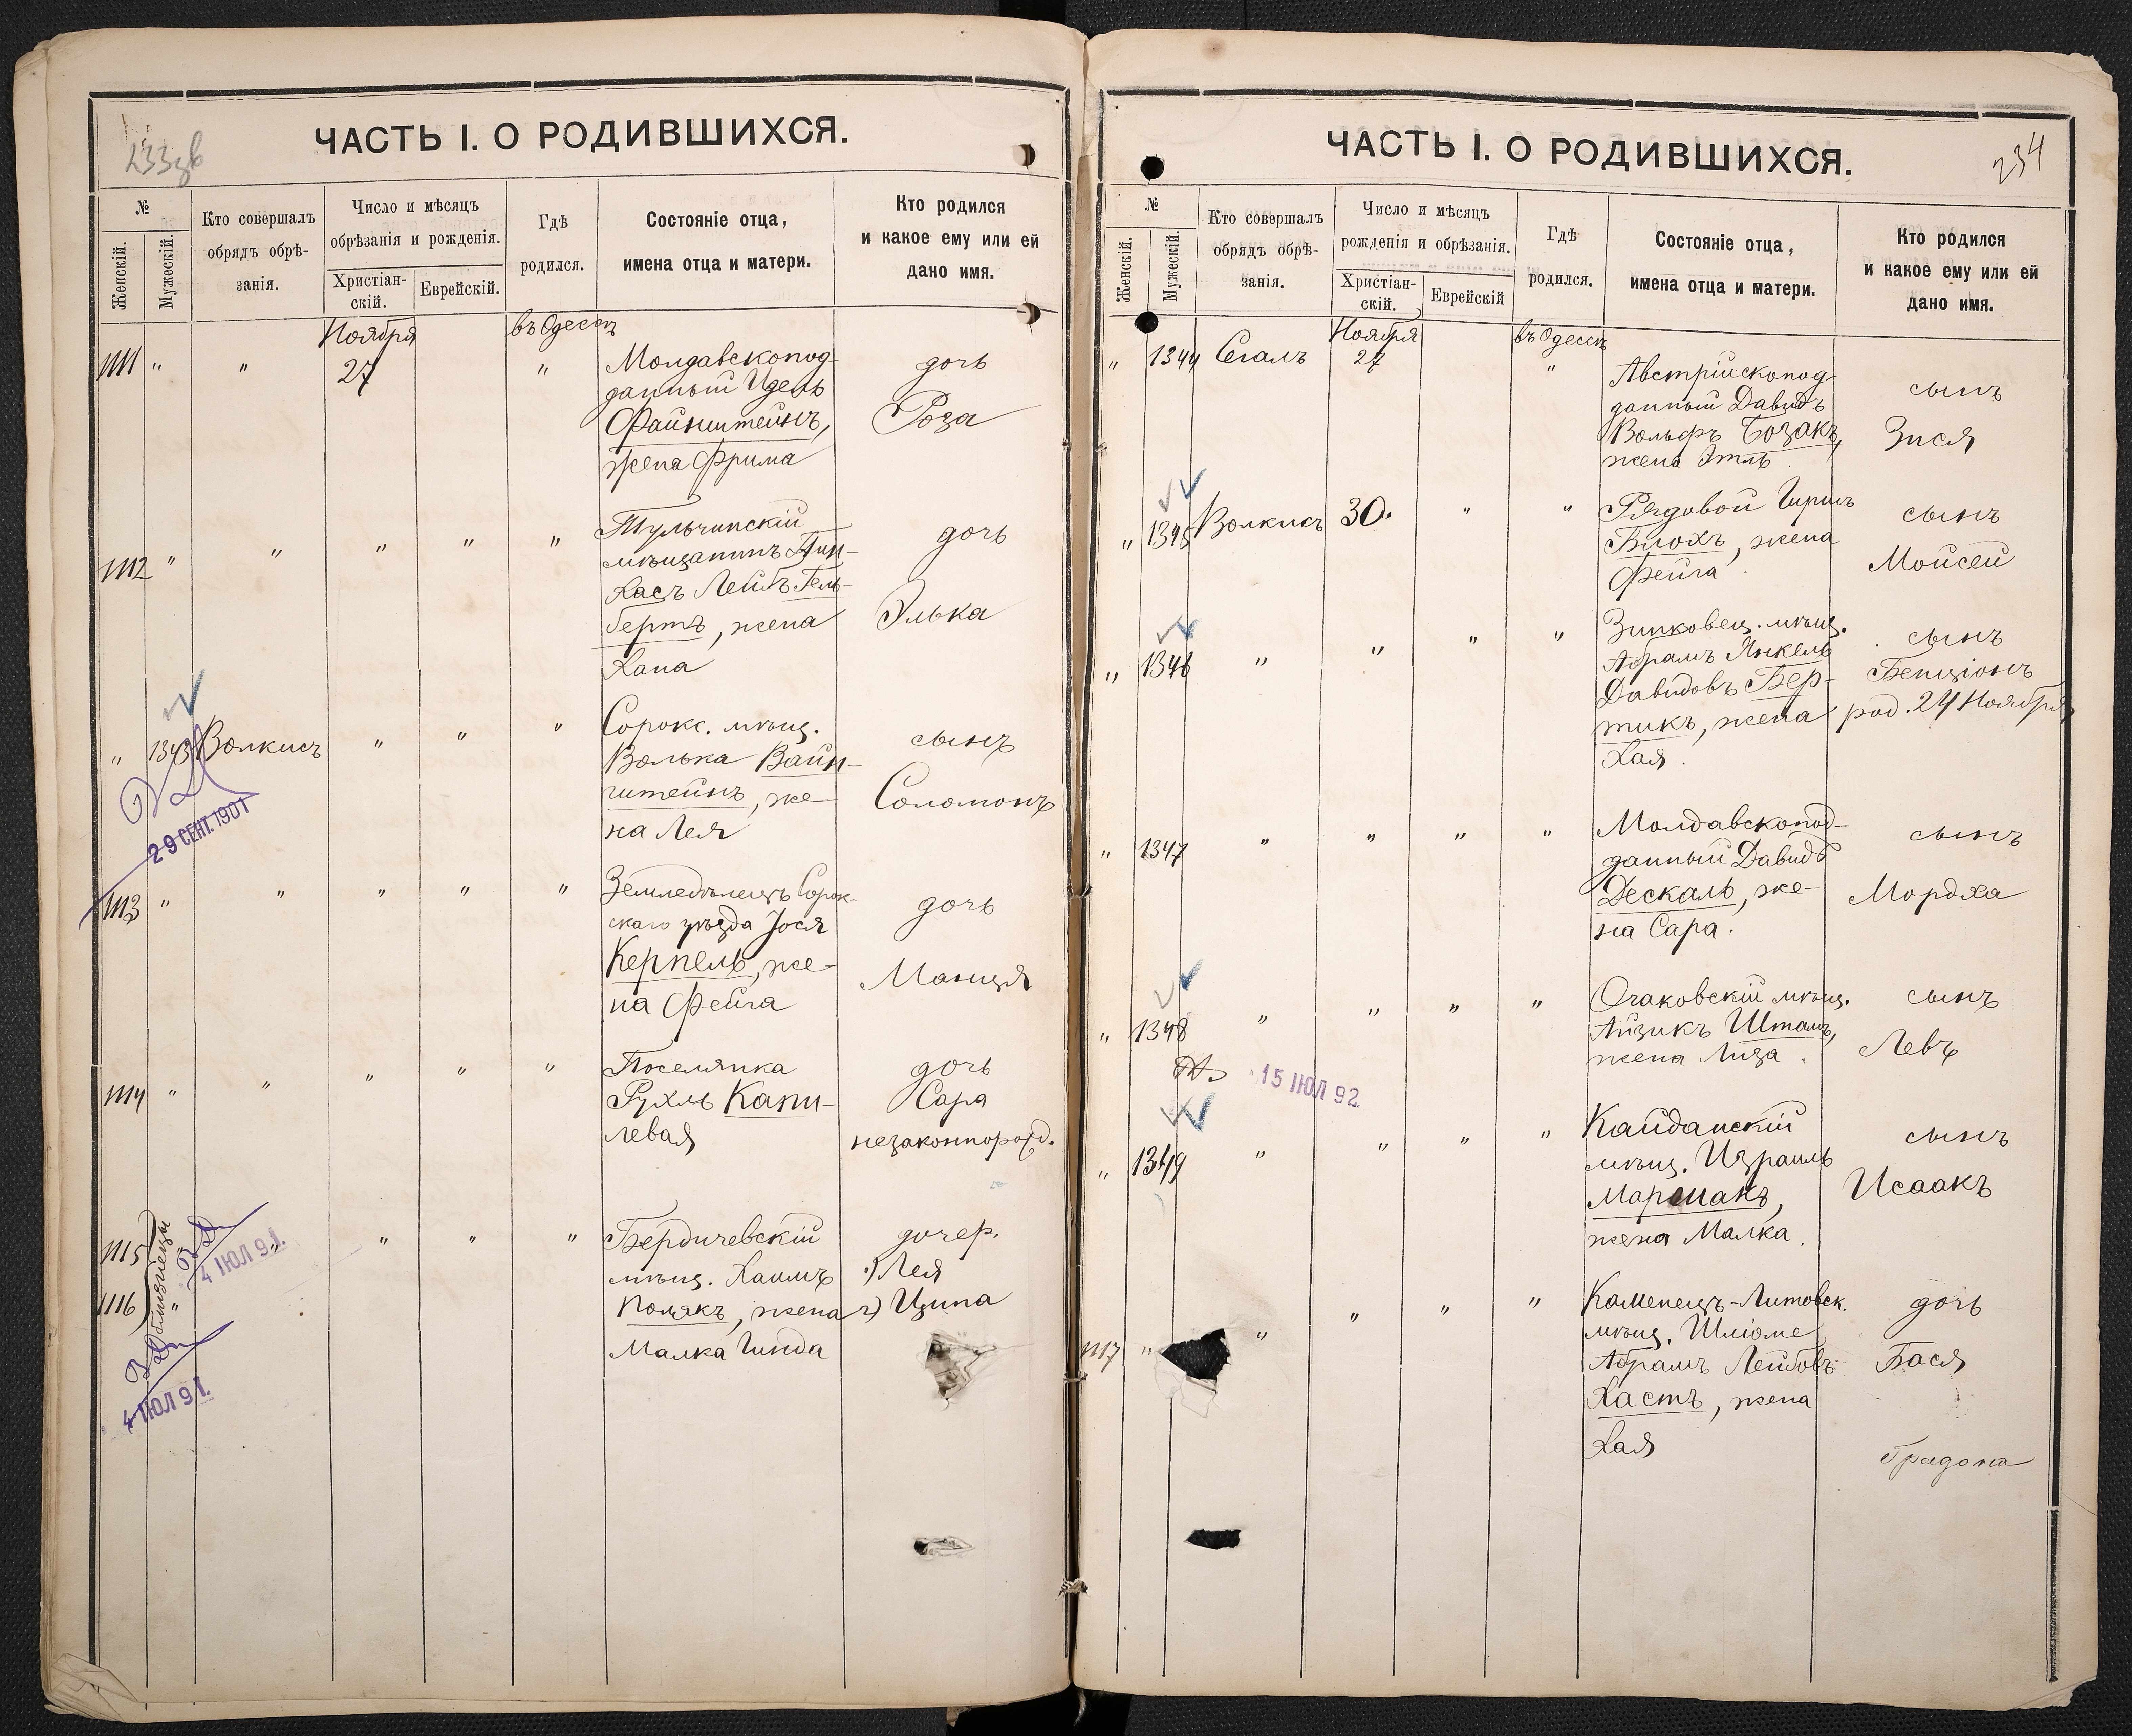 233 об
ЧАСТЬ I. О РОДИВШИХСЯ.
№
Женскій.
Мужескій.
Кто совершалъ
обрядъ обрѣ-
занія.
Число и мѣсяцъ
обрѣзанія и рожденія.
Христіан-
скій.
Еврейскій.
Гдѣ
родился.
Состояніе отца,
имена отца и матери.
Кто родился
и какое ему или ей
дано имя.
Ноября
въ Одессѣ
1111 " " 27 " Молдавскопод-
данный Идель
Файнштейнъ,
жена Фрима
дочь
Роза
1112 " " " " " Тульчинскій
мѣщанинъ Пин-
хасъ Лейбъ Гель-
бертъ, жена
Хана
дочь
Элька
" 1343 Волкисъ " " " Сорокс. мѣщ.
Волька Вайн-
штейнъ, же-
на Лея
сынъ
Соломонъ
29 СЕНТ. 1901
1113 " " " " " Земледѣлецъ Сорок-
скаго уѣзда Іося
Керпель, же-
на Фейга
дочь
Манця
1114 " " " " " Поселянка
Рухль Капи-
левая
дочь
Сара
незаконнорожд.
1115
1116
близнецы
" " " " Бердичевскій
мѣщ. Хаимъ
Полякъ, жена
Малка Гинда
дочер.
1) Лея
2) Ципа
4 ІЮЛ 91.
4 ІЮЛ 91.
ЧАСТЬ I. О РОДИВШИХСЯ.
234
№
Женскій.
Мужескій.
Кто совершалъ
обрядъ обрѣ-
занія.
Число и мѣсяцъ
рожденія и обрѣзанія.
Христіан-
скій.
Еврейскій
Гдѣ
родился.
Состояніе отца,
имена отца и матери.
Кто родился
и какое ему или ей
дано имя.
Ноября
въ Одессѣ
" 1344 Сегалъ 27 " Австрійскопод-
данный Давидъ
Вольфъ Созакъ,
жена Этль
сынъ
Зися
" 1345 Волкисъ 30. " " Рядовой Гиршъ
Блохъ, жена
Фейга
сынъ
Мойсей
" 1346 " " " " Зинковец. мѣщ.
Абрамъ Янкель
Давидовъ Бер-
тикъ, жена
Хая.
сынъ
Бенціонъ
род. 24 Ноября
" 1347 " " " " Молдавскопод-
данный Давидъ
Дескаль, же-
на Сара.
сынъ
Мордха
" 1348 " " " " Очаковскій мѣщ.
Айзикъ Штамъ,
жена Лиза.
сынъ
Левъ
15 ІЮЛ 92.
" 1349 " " " " Кайданскій
мѣщ. Израиль
Маршакъ,
жена Малка.
сынъ
Исаакъ
1117 " " " " " Каменецъ-Литовск.
мѣщ. Шліоме
Абрамъ Лейбовъ
Хастъ, жена
Хая
дочь
Бася